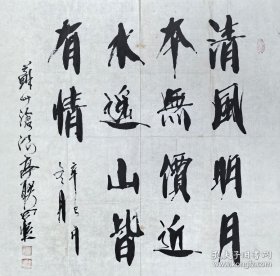 清風明月
本無價近
水遙山皆
有情
辛巳年
冬月
蘇州滄浪亭聯